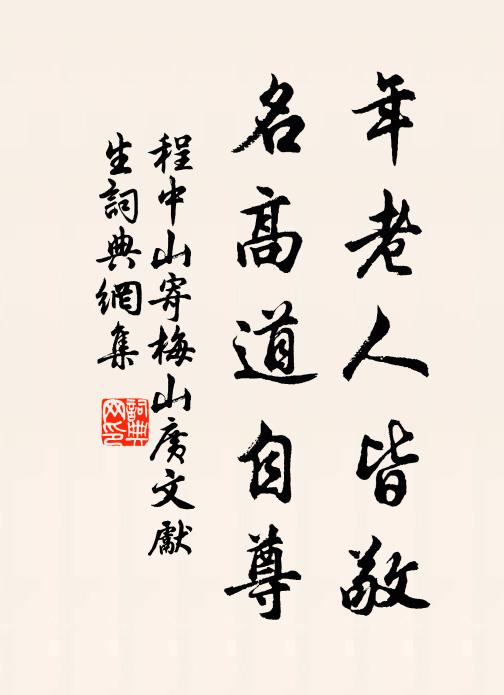 年老人皆敬
名高道自尊
程中山寄梅山廣文獻
生詞典網集
詞典
网印